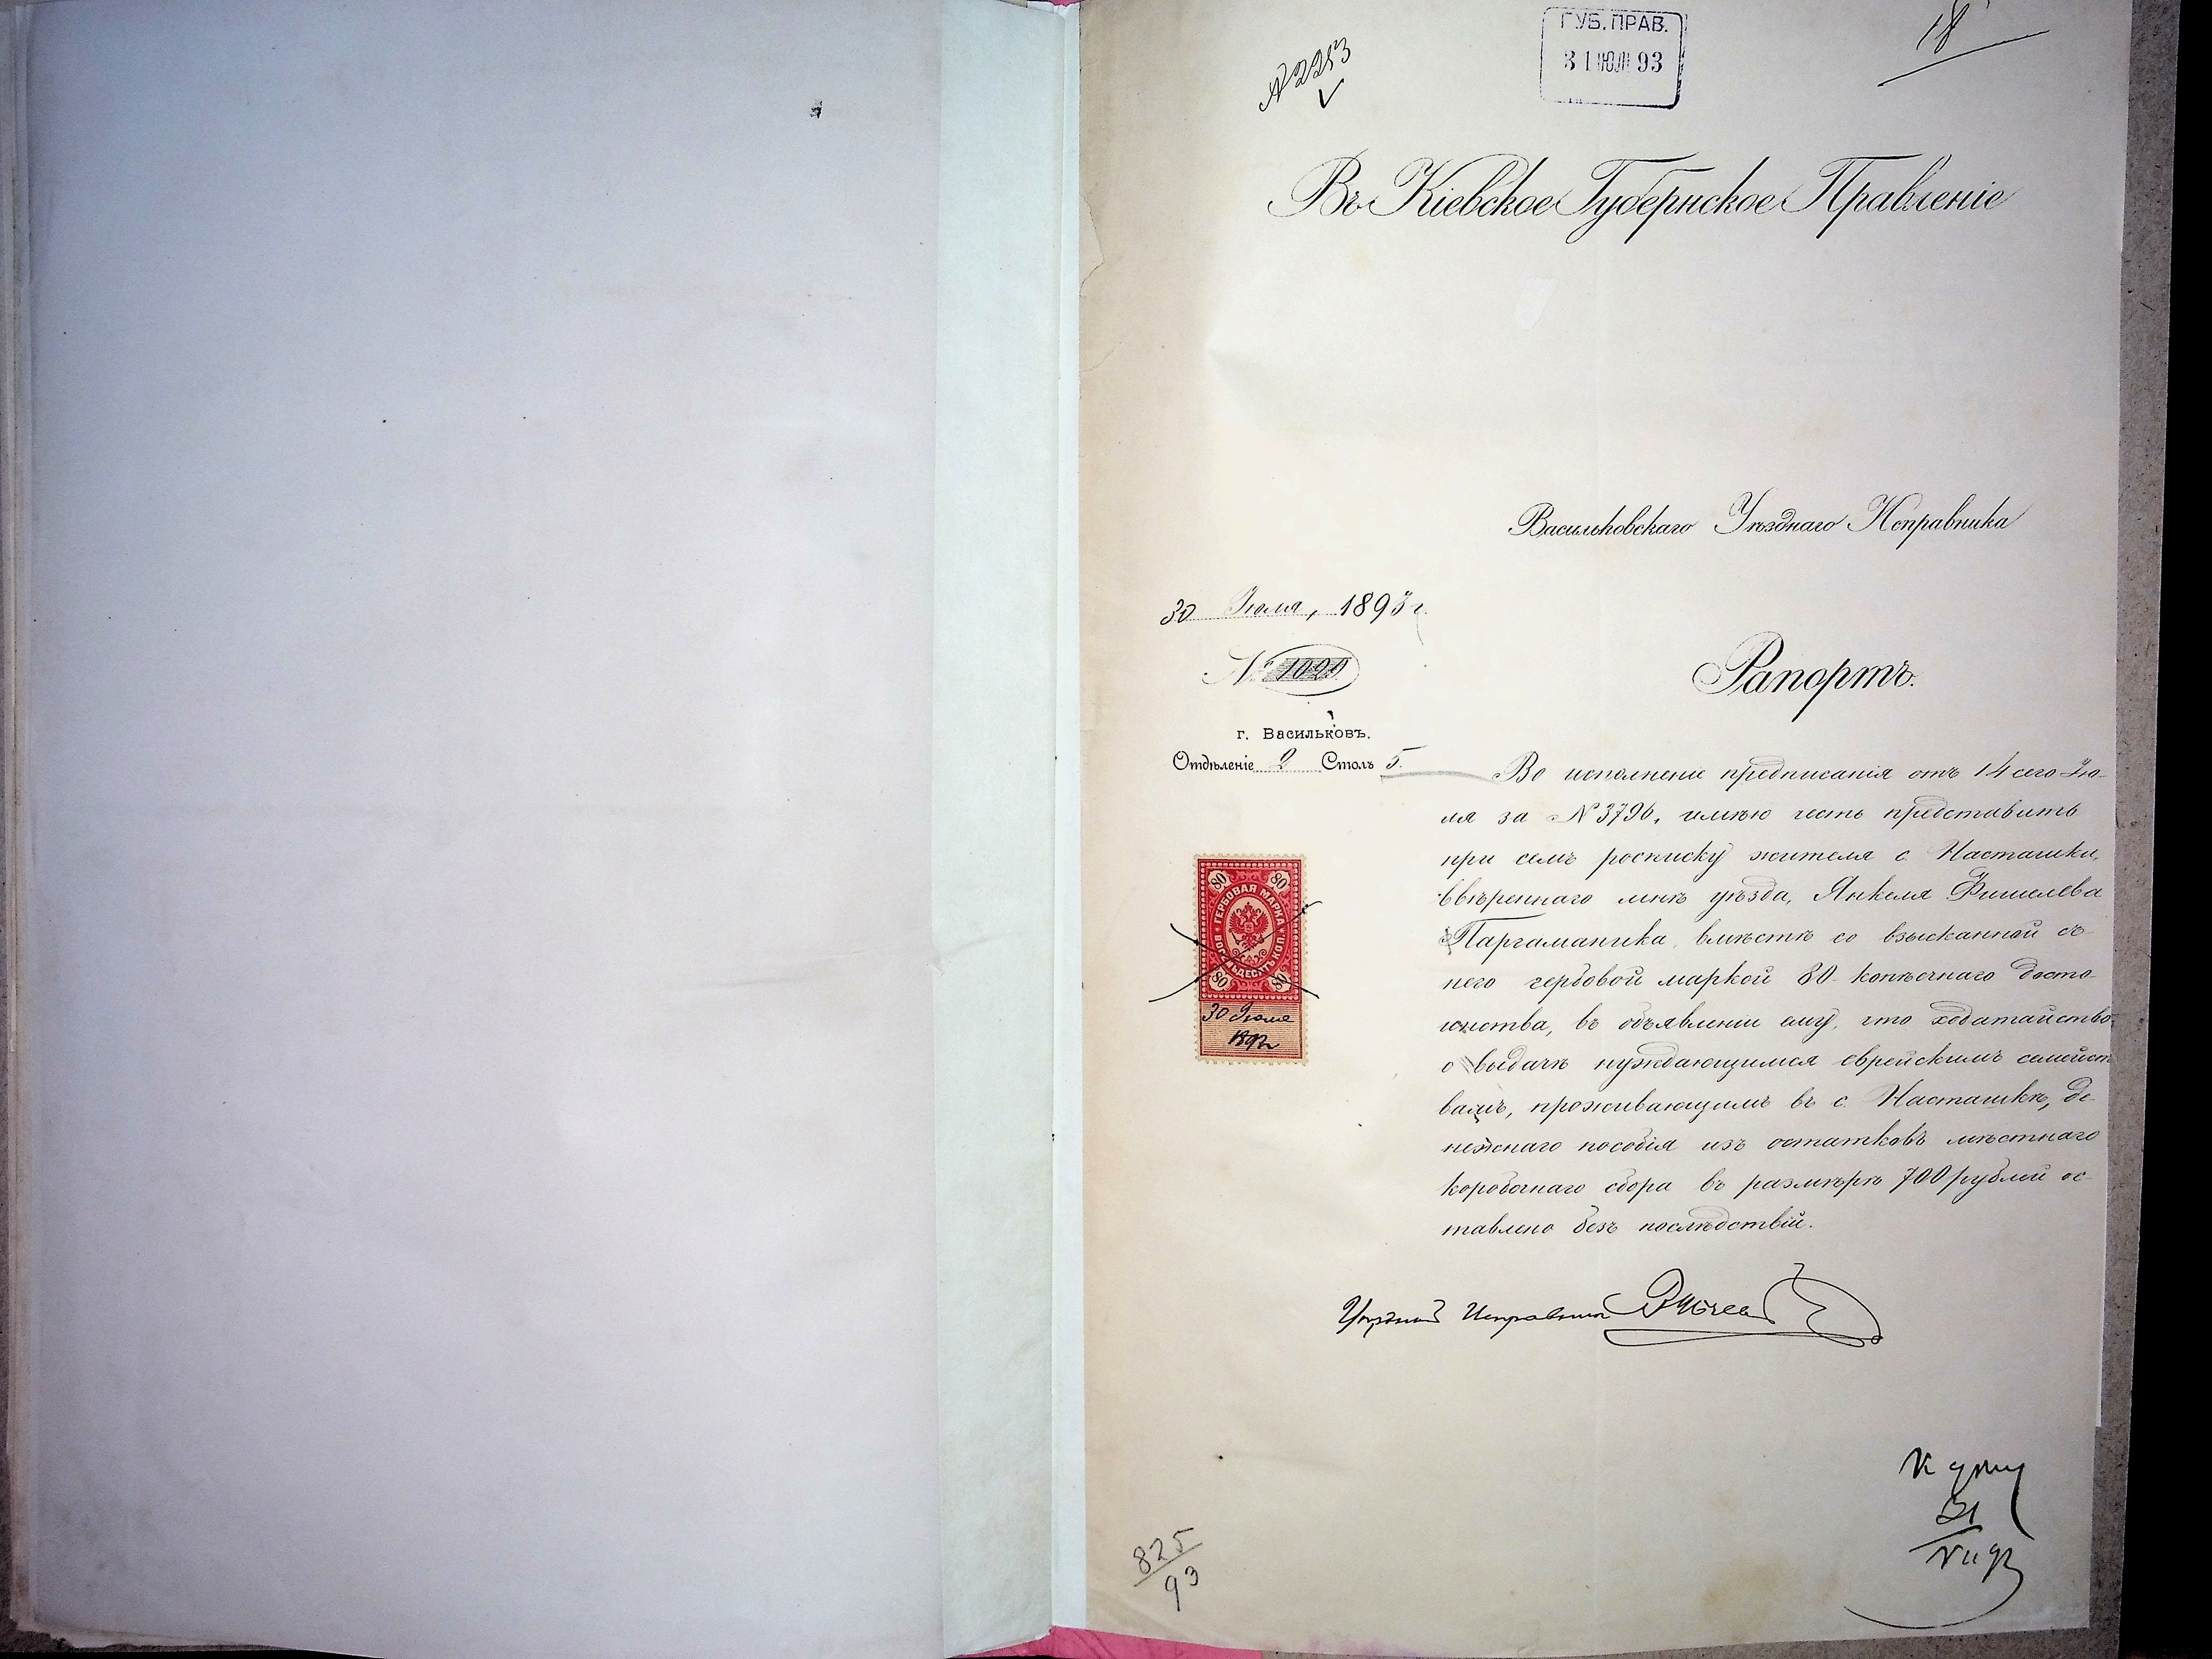 № 2253
ГУБ. ПРАВ.
31 ІЮЛ 93
18
Въ Кіевское Губернское Правленіе
Васильковскаго Уѣзднаго Исправника
30 Іюля, 1893 г.
№
г. Васильковъ.
Отдѣленіе 2 Столъ 5.
Рапортъ.
Во исполненіе предписанія отъ 14 сего Ію-
ля за № 3796, имѣю честь представить
при семъ росписку жителя с. Насташки,
ввѣреннаго мнѣ уѣзда, Янкеля Фишелева
Паргаманика, вмѣстѣ со взысканной съ
него гербовой маркой 80 копѣечнаго досто-
инства, въ объявленіи ему, что ходатайство
о выдачѣ нуждающимся еврейскимъ семейст
вамъ, проживающимъ въ с. Насташкѣ, де-
нежнаго пособія изъ остатковъ мѣстнаго
коробочнаго сбора въ размѣрѣ 700 рублей ос-
тавлено безъ послѣдствій.
80 80
ГЕРБОВАЯ МАРКА
ВОСЕМЬДЕСЯТЪ КОП.
80 80
30 Іюля
Уѣздный Исправникъ
825
93
К дѣлу
31